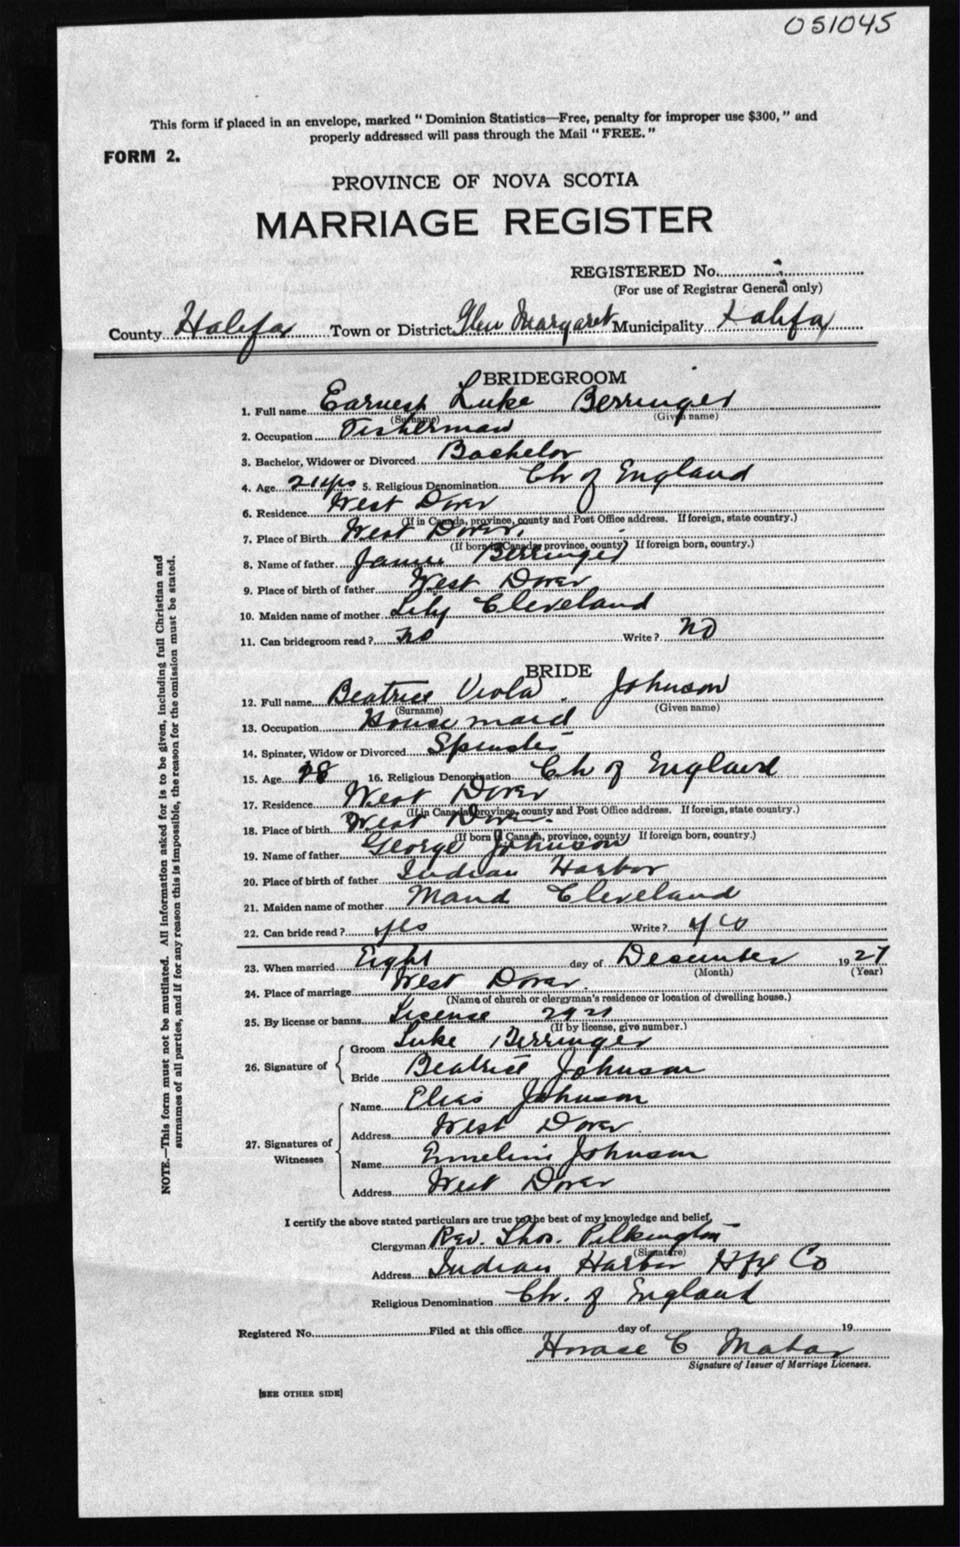 051045
This form if placed in an envelope, marked "Dominion Statistics—Free, penalty for improper use $300," and
properly addressed will pass through the Mail "FREE."
FORM 2.
PROVINCE OF NOVA SCOTIA
MARRIAGE REGISTER
REGISTERED No.
(For use of Registrar General only)
County Halifax Town or District Glen Margaret Municipality Halifax
BRIDEGROOM
1. Full name Earnest Luke Berringer
(Surname) (Given name)
2. Occupation Fisherman
3. Bachelor, Widower or Divorced Bachelor
4. Age 21 yrs 5. Religious Denomination Ch of England
6. Residence West Dover
(If in Canada, province, county and Post Office address. If foreign, state country.)
7. Place of Birth West Dover
(If born in Canada, province, county) If foreign born, country.)
8. Name of father James Berringer
9. Place of birth of father West Dover
10. Maiden name of mother Lily Cleveland
11. Can bridegroom read? no Write? no
BRIDE
12. Full name Beatrice Viola Johnson
(Surname) (Given name)
13. Occupation House maid
14. Spinster, Widow or Divorced Spinster
15. Age 28 16. Religious Denomination Ch of England
17. Residence West Dover
(If in Canada, province, county and Post Office address. If foreign, state country.)
18. Place of birth West Dover
(If born in Canada, province, county) If foreign born, country.)
19. Name of father George Johnson
20. Place of birth of father Indian Harbor
21. Maiden name of mother Maud Cleveland
22. Can bride read? yes Write? yes
23. When married Eight day of December 1927
(Month) (Year)
24. Place of marriage West Dover
(Name of church or clergyman's residence or location of dwelling house.)
25. By license or banns License 2921
(If by license, give number.)
26. Signature of
Groom Luke Berringer
Bride Beatrice Johnson
27. Signatures of Witnesses
Name Elias Johnson
Address West Dover
Name Emeline Johnson
Address West Dover
I certify the above stated particulars are true to the best of my knowledge and belief,
Clergyman Rev. Thos. Pilkington
(Signature)
Address Indian Harbor Hfx Co
Religious Denomination Ch. of England
Registered No. Filed at this office day of 19
Horace C
Signature of Issuer of Marriage Licenses.
[SEE OTHER SIDE]
NOTE.—This form must not be mutilated. All information asked for is to be given, including full Christian and
surnames of all parties, and if for any reason this is impossible, the reason for the omission must be stated.